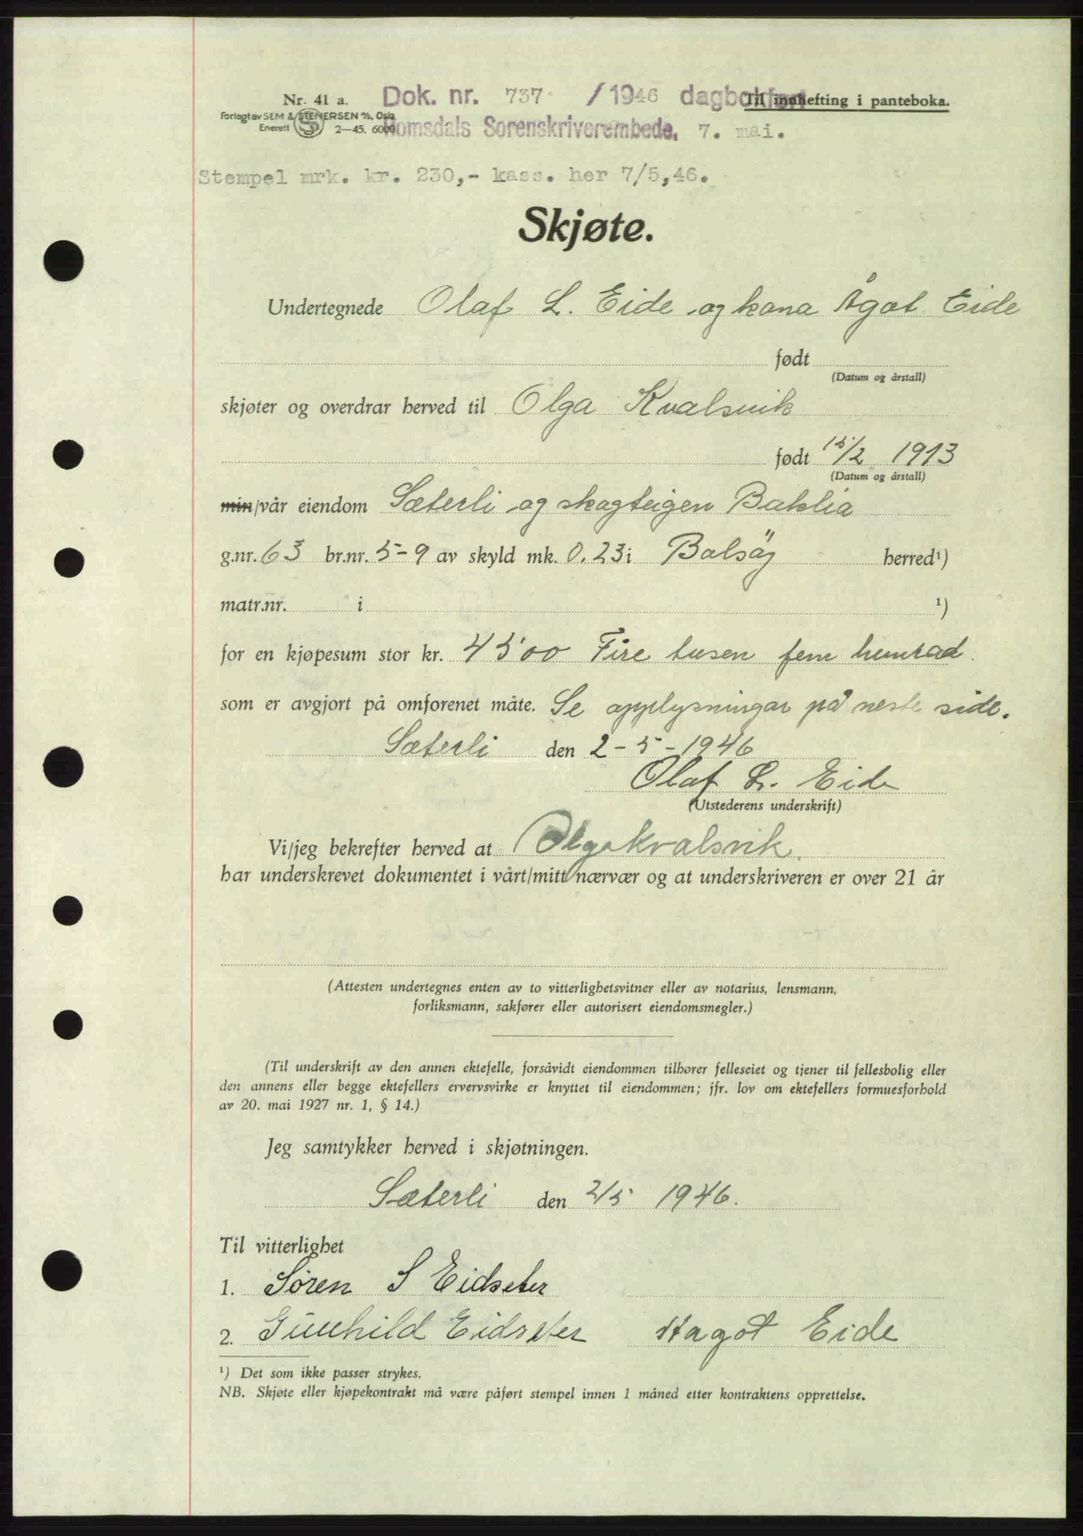 Nr. 41 a.
Forlagt av SEM & STENERSEN A/S, Oslo
Enerett 2—45. 6000
Dok. nr. 737 / 1946 dagbokført
Til innhefting i panteboka.
Romsdals Sorenskriverembede, 7. mai.
Stempel mrk. kr. 230,- kass. her 7/5,46.
Skjøte.
Undertegnede Olaf L. Eide og kona Ågot Eide
født
(Datum og årstall)
skjøter og overdrar herved til Olga Kvalsvik
født 15/2 1913
(Datum og årstall)
min/vår eiendom Sæterli og skogteigen Baklia
g.nr. 63 br.nr. 5-9 av skyld mk. 0.23 i Bolsøy herred¹)
matr.nr. i ¹)
for en kjøpesum stor kr. 4500 Fire tusen fem hundrad
som er avgjort på omforenet måte. Se opplysningar på neste side.
Sæterli den 2-5-1946
Olaf L. Eide
(Utstederens underskrift)
Vi/jeg bekrefter herved at Olga Kvalsvik.
har underskrevet dokumentet i vårt/mitt nærvær og at underskriveren er over 21 år
(Attesten undertegnes enten av to vitterlighetsvitner eller av notarius, lensmann,
forliksmann, sakfører eller autorisert eiendomsmegler.)
(Til underskrift av den annen ektefelle, forsåvidt eiendommen tilhører felleseiet og tjener til fellesbolig eller
den annens eller begge ektefellers ervervsvirke er knyttet til eiendommen; jfr. lov om ektefellers formuesforhold
av 20. mai 1927 nr. 1, § 14.)
Jeg samtykker herved i skjøtningen.
Sæterli den 2/5 1946.
Til vitterlighet
1. Søren S Eidseter
2. Gunhild Eidseter Aagot Eide
¹) Det som ikke passer strykes.
NB. Skjøte eller kjøpekontrakt må være påført stempel innen 1 måned etter kontraktens opprettelse.